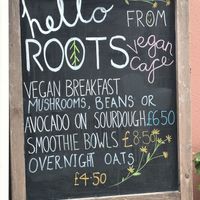 hello FROM
ROOTS vegan cafe
VEGAN BREAKFAST
MUSHROOMS, BEANS OR
AVOCADO ON SOURDOUGH £6.50
SMOOTHIE BOWLS £8.50
OVERNIGHT OATS
£4.50